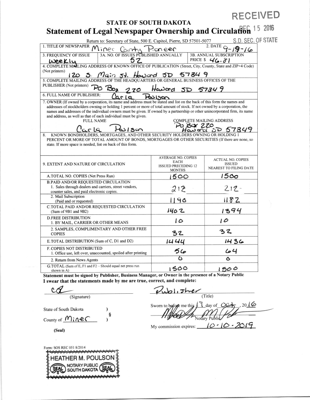 RECEIVED
DEC 15 2016
S.D. SEC. OF STATE
STATE OF SOUTH DAKOTA
Statement of Legal Newspaper Ownership and Circulation
Return to: Secretary of State, 500 E. Capitol, Pierre, SD 57501-5077
1. TITLE OF NEWSPAPER Miner County Pioneer 2. DATE 9-18-16
3. FREQUENCY OF ISSUE weekly
3A. NO. OF ISSUES PUBLISHED ANNUALLY 52
3B. ANNUAL SUBSCRIPTION PRICE $ 46.81
4. COMPLETE MAILING ADDRESS OF KNOWN OFFICE OF PUBLICATION (Street, City, County, State and ZIP+4 Code) (Not printers)
120 S Main St. Howard SD 57349
5. COMPLETE MAILING ADDRESS OF THE HEADQUARTERS OR GENERAL BUSINESS OFFICES OF THE PUBLISHER (Not printer) PO Box 220 Howard SD 57349
6. FULL NAME OF PUBLISHER Carla Poulson
7. OWNER (If owned by a corporation, its name and address must be stated and list on the back of this form the names and addresses of stockholders owning or holding 1 percent or more of total amount of stock. If not owned by a corporation, the names and addresses of the individual owners must be given. If owned by a partnership or other unincorporated firm, its name and address, as well as that of each individual must be given.
FULL NAME COMPLETE MAILING ADDRESS
Carla Poulson PO Box 220 Howard SD 57349
8. KNOWN BONDHOLDERS, MORTGAGEES, AND OTHER SECURITY HOLDERS OWNING OR HOLDING 1 PERCENT OR MORE OF TOTAL AMOUNT OF BONDS, MORTGAGES OR OTHER SECURITIES (If there are none, so state. If more space is needed, list on back of this form.
9. EXTENT AND NATURE OF CIRCULATION
AVERAGE NO. COPIES EACH ISSUED PRECEDING 12 MONTHS
ACTUAL NO. COPIES ISSUED NEAREST TO FILING DATE
A.TOTAL NO. COPIES (Net Press Run) 1500 1500
B.PAID AND/OR REQUESTED CIRCULATION
1. Sales through dealers and carriers, street vendors, counter sales, and paid electronic copies. 212 212
2. Mail Subscription (Paid and or requested) 1190 1182
C.TOTAL PAID AND/OR REQUESTED CIRCULATION (Sum of 9B1 and 9B2) 1402 1394
D.FREE DISTRIBUTION
1. BY MAIL, CARRIER OR OTHER MEANS 10 10
2. SAMPLES, COMPLIMENTARY AND OTHER FREE COPIES 32 32
E. TOTAL DISTRIBUTION (Sum of C, D1 and D2) 1444 1436
F. COPIES NOT DISTRIBUTED
1. Office use, left over, unaccounted, spoiled after printing 56 64
2. Return from News Agents 0 0
G.TOTAL (Sum of E, F1 and F2 - Should equal net press run shown in A) 1500 1500
Statement must be signed by Publisher, Business Manager, or Owner in the presence of a Notary Public
I swear that the statements made by me are true, correct, and complete:
Publisher
(Signature) (Title)
State of South Dakota )
) §
County of Miner )
(Seal)
Notary Public
My commission expires: 10-10-2019
Form: SOS REC 051 8/2014
HEATHER M. POULSON
SEAL NOTARY PUBLIC SOUTH DAKOTA SEAL